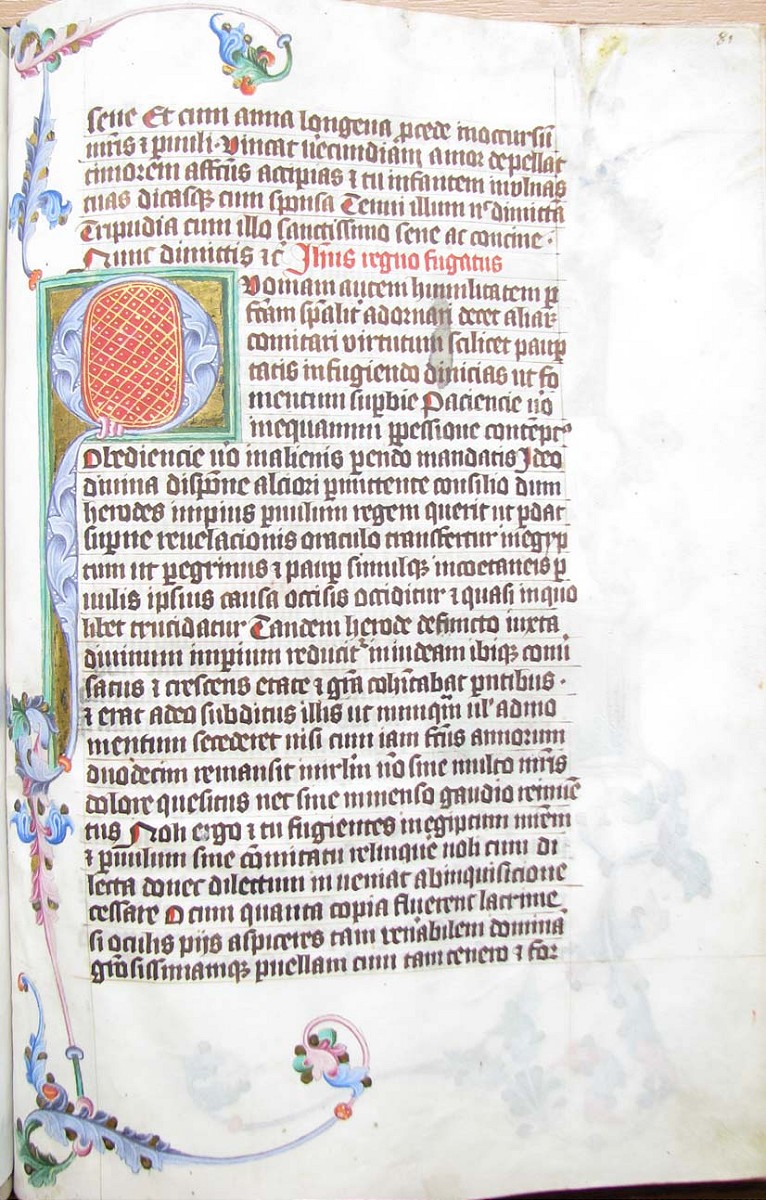 81
sene Et cum anna longeua ꝓcede inoccursū
mr̄is ⁊ pueruli · Vincat uecundiam amor depellat
timorem affcūs accipias ⁊ tu infantem inulnas
tuas dicasqꝫ cum sponsa Tenui illum nͨ dimittā
Tripudia cum illo sanctissimo sene ac concine ·
Nunc dimittis ⁊c̄ Jhūs regno fugatus
Quoniam autem humilitatem ꝑ
fc̄am sp̄alit᷑ adornari decet aliar᷑
comitari virtutum scilicet pauꝑ
tatis infugiendo diuicias ut fo
mentum suꝑbie Paciencie u͛o
inequanimi ꝑpessione contēptꝰ
Obediencie u͛o inalienis ꝑendo mandatis Jdeo
diuina dispōne alciori ꝑmittente consilio dum
herodes impius puulum regem querit ut ꝑdat
suꝑne reuelacionis oraculo transfertur inegyp
tum ut ꝑegrinus ⁊ pauꝑ simulqꝫ incoetaneis ꝑ
uulis ipsius causa occisis occiditur ⁊ quasi inquo
libet trucidatur Tandem herode defuncto iuxta
diuinum imꝑium reducit᷑ in iudeam ibiqꝫ conu͛
satus ⁊ crescens etate ⁊ gr̄a cohītabat ꝑntibus ·
⁊ erat adeo subditus illis ut nunqm̄ ul̓ admo
mentum secederet nisi cum iam fcūs annorum
duodecim remansit inrlm̄ nō sine multo mr̄is
dolore quesitus nec sine inmenso gaudio reinuē
tus Noli ergo ⁊ tu fugientes inegiptum mr̄em
⁊ puulum sine cōmitatu relinque noli cum di
lecta donec dilectum inueniat abinquisicione
cessare O cum quanta copia fluerent lacrime
si oculis pijs aspiceres tam uen͛abilem domina
gn̄osissimamqꝫ puellam cum tam tenero ⁊ for